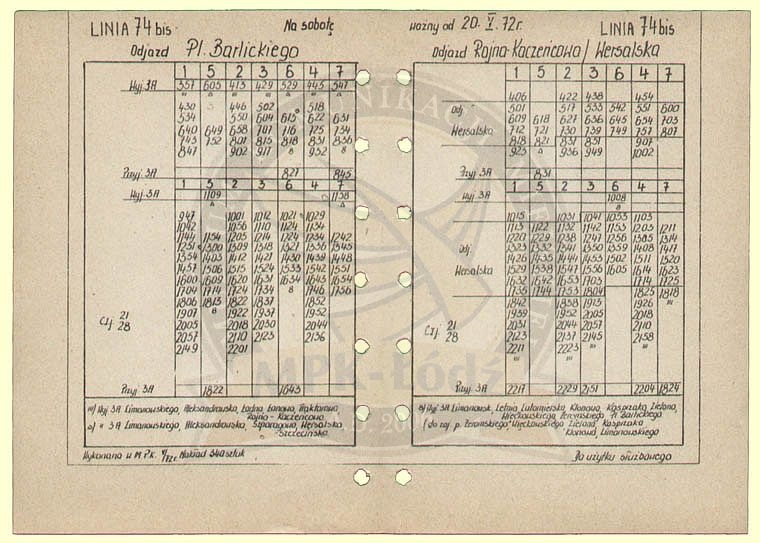 LINIA 74 bis Na sobotę ważny od 20. X. 72r. LINIA 74 bis
Odjazd Pl. Barlickiego
1 5 2 3 6 4 7
Wyj. 3A 357 605 413 429 529 445 547
430 446 502 518
534 550 604 615 622 631
640 649 658 707 716 725 734
743 752 801 815 818 831 836
847 902 917 932
Przyj. 3A 827 845
1 5 2 3 6 4 7
Wyj. 3A 1109 1138
947 1001 1012 1021 1029
1042 1056 1110 1124 1134
1144 1154 1205 1214 1224 1234 1242
1251 1300 1309 1318 1327 1336 1345
1354 1403 1412 1421 1430 1439 1448
1457 1506 1515 1524 1533 1542 1551
1600 1609 1620 1631 1634 1643 1654
1704 1714 1724 1734 1746 1756
1806 1813 1822 1837 1852
1907 1922 1937 1952
2005 2018 2030 2044
2057 2110 2123 2136
2149 2201
Czj. 21
28
Przyj. 3A 1822 1643
Wyj 3A Limanowskiego, Aleksandrowska, Ładna, Łanowa, Traktorowa,
Rojna - Kaczeńcowa
3A Limanowskiego, Aleksandrowska, Szparagowa, Wersalska
- Szczecińska
Wykonano w M.P.K. Nakład 340 sztuk
Odjazd Rojna-Kaczeńcowa / Wersalska
1 5 2 3 6 4 7
406 422 438 454
Odj. 501 517 533 542 551 600
609 618 627 636 645 654 703
Wersalska 712 721 730 739 749 757 807
818 821 831 831 907
923 936 949 1002
Przyj. 3A 831
1 5 2 3 6 4 7
Wyj. 3A 1008
1015 1031 1041 1053 1103
1113 1122 1132 1142 1153 1203 1211
1220 1229 1238 1247 1256 1314
1323 1332 1341 1350 1359 1408 1417
Odj. 1426 1435 1444 1453 1502 1511 1520
Wersalska 1529 1538 1547 1556 1605 1614 1623
1632 1642 1653 1703 1714 1725
1736 1744 1753 1804 1825 1818
1842 1858 1913 1926
1939 1952 2005 2018
2031 2044 2057 2110
2123 2137 2145 2158
2211 2223
Czj. 21
28
Przyj. 3A 2217 2229 2151 2204 1824
Wyj 3A Limanowsk, Letnia, Lutomierska, Klonowa, Kasprzaka, Zielona,
Więckowskiego, Żeromskiego - Pl. Barlickiego
Więckowskiego, Zielona, Kasprzaka
Klonowa, Limanowskiego
Do użytku służbowego
MPK-Łódź